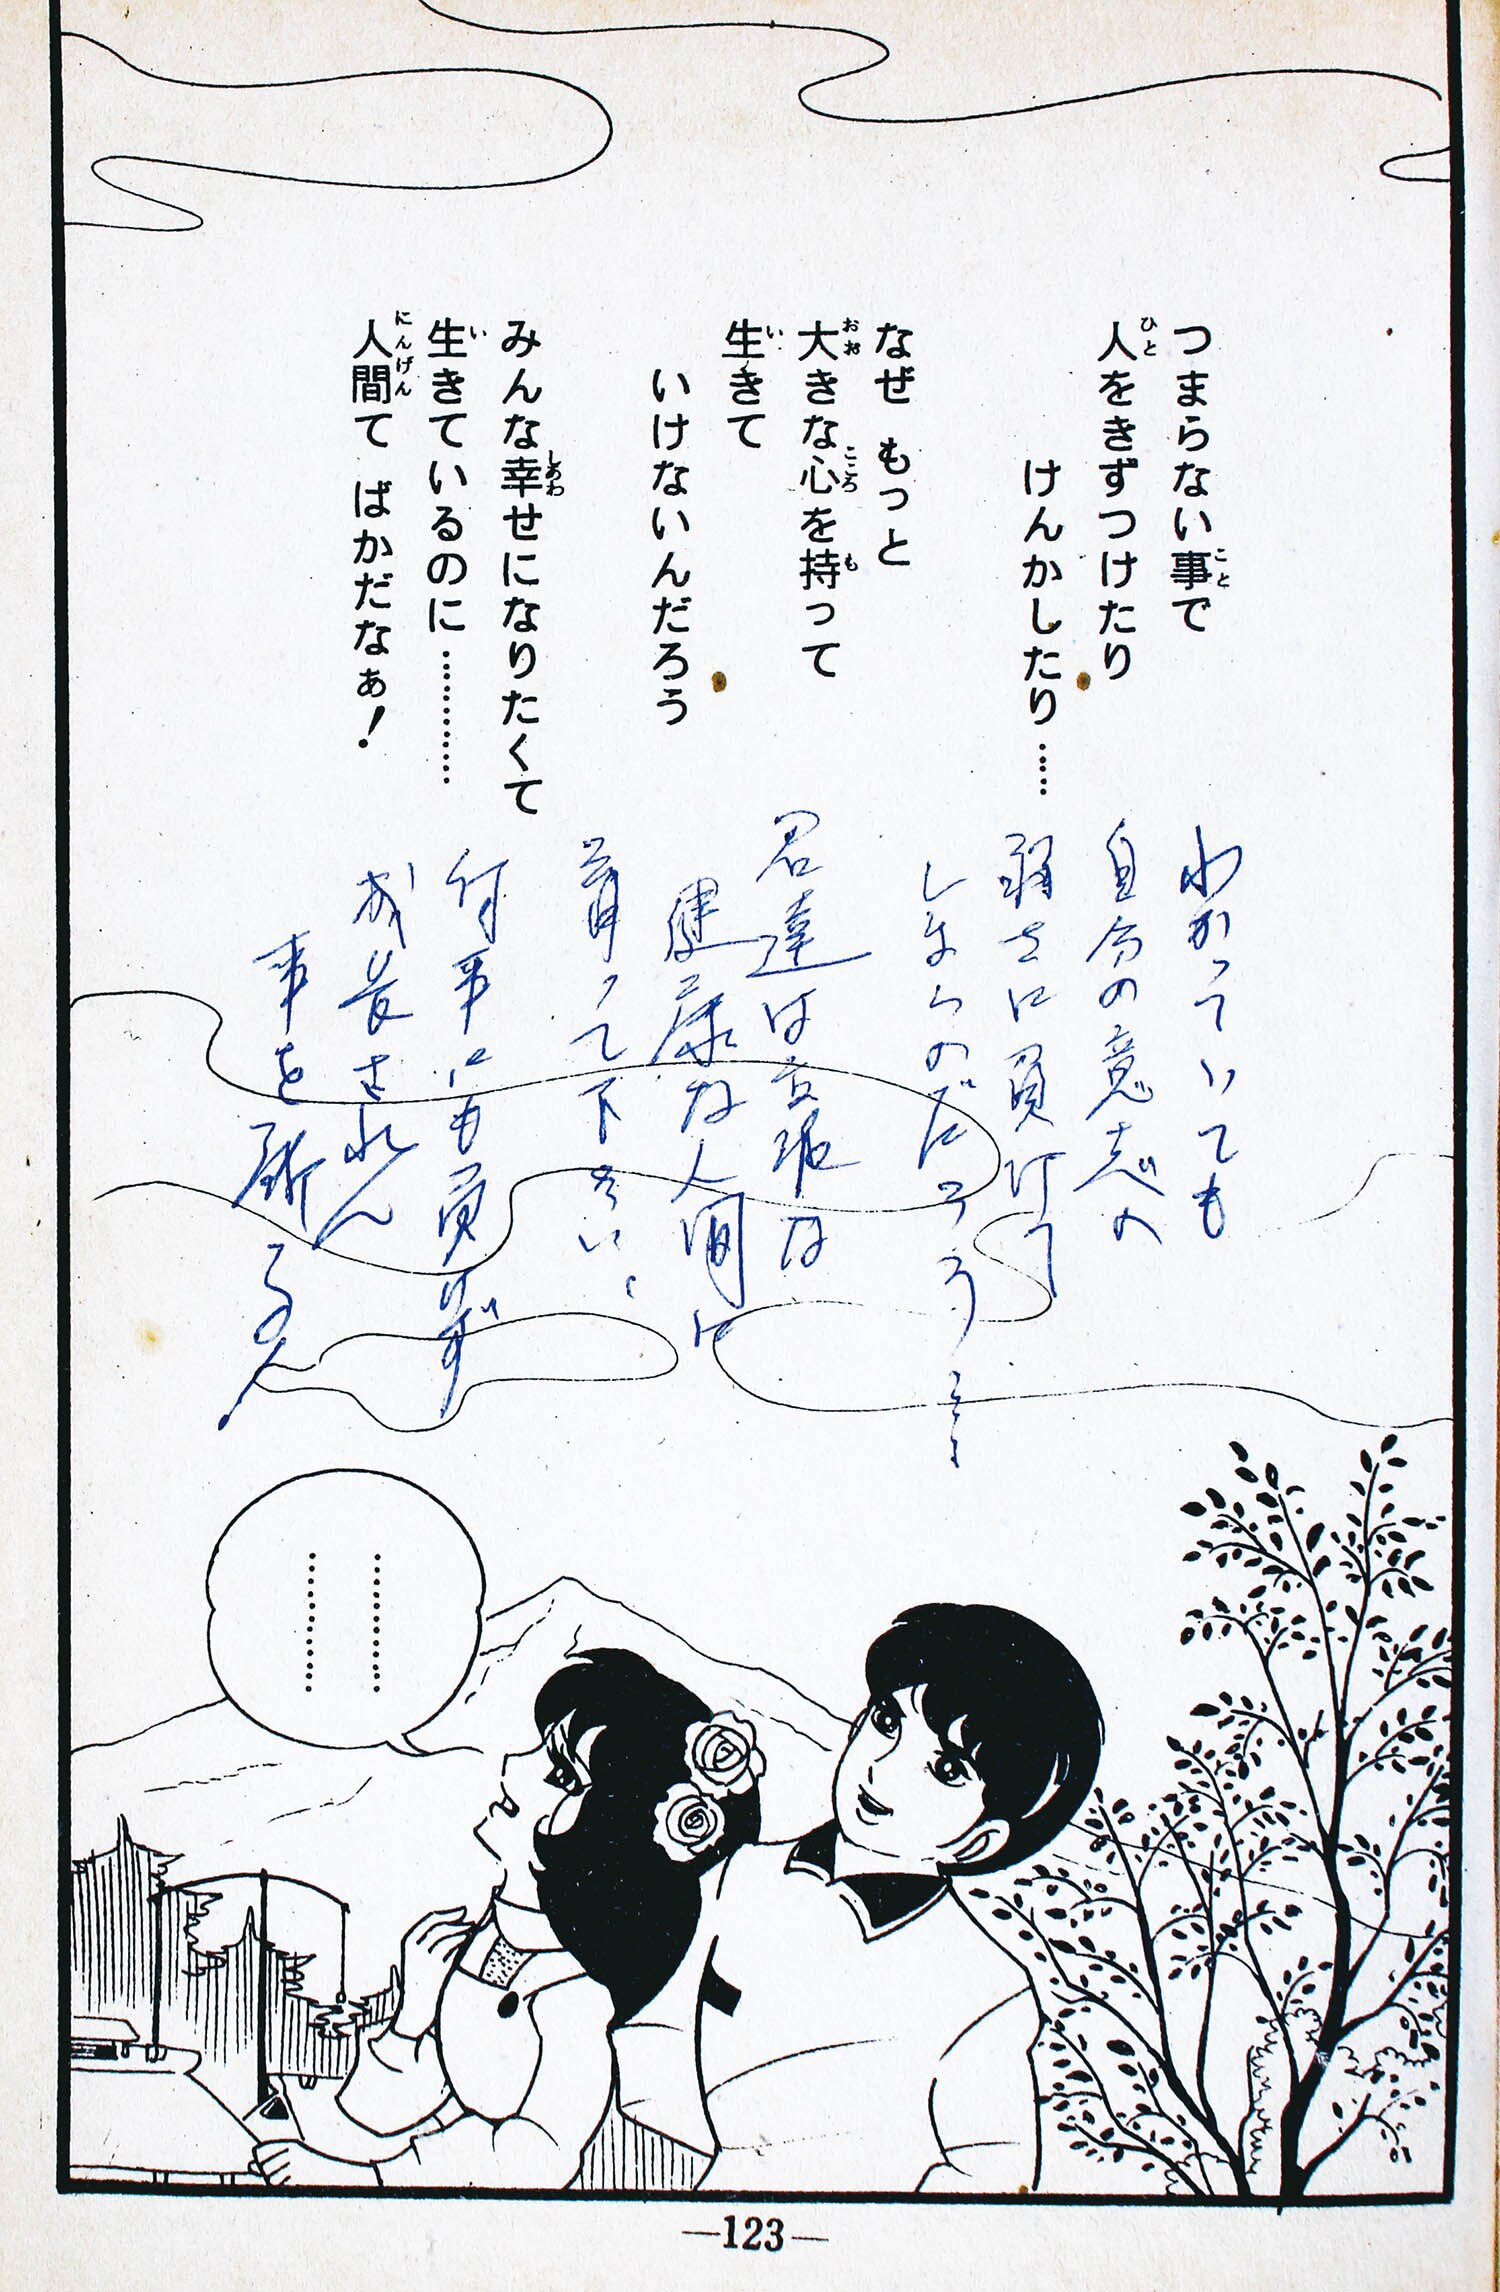 つまらない事で
人をきずつけたり
けんかしたり……
なぜ もっと
大きな心を持って
生きて
いけないんだろう
みんな幸せになりたくて
生きているのに…………
人間て ばかだなぁ！
わかっていても
自分の意志の
弱さに負けて
しまうのだろう……
君達は立派な
健康な人間に
育って下さい、
何事にも負けず
成長されん
事を祈る
…………
…………
—123—